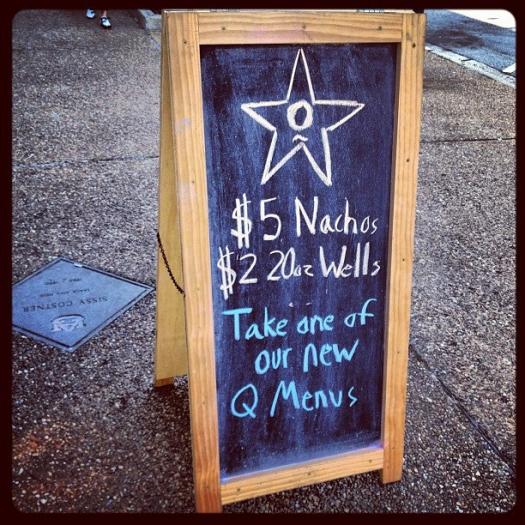 $5 Nachos
$2 20oz Wells
Take one of
our new
Q Menus
SISSY COSTNER